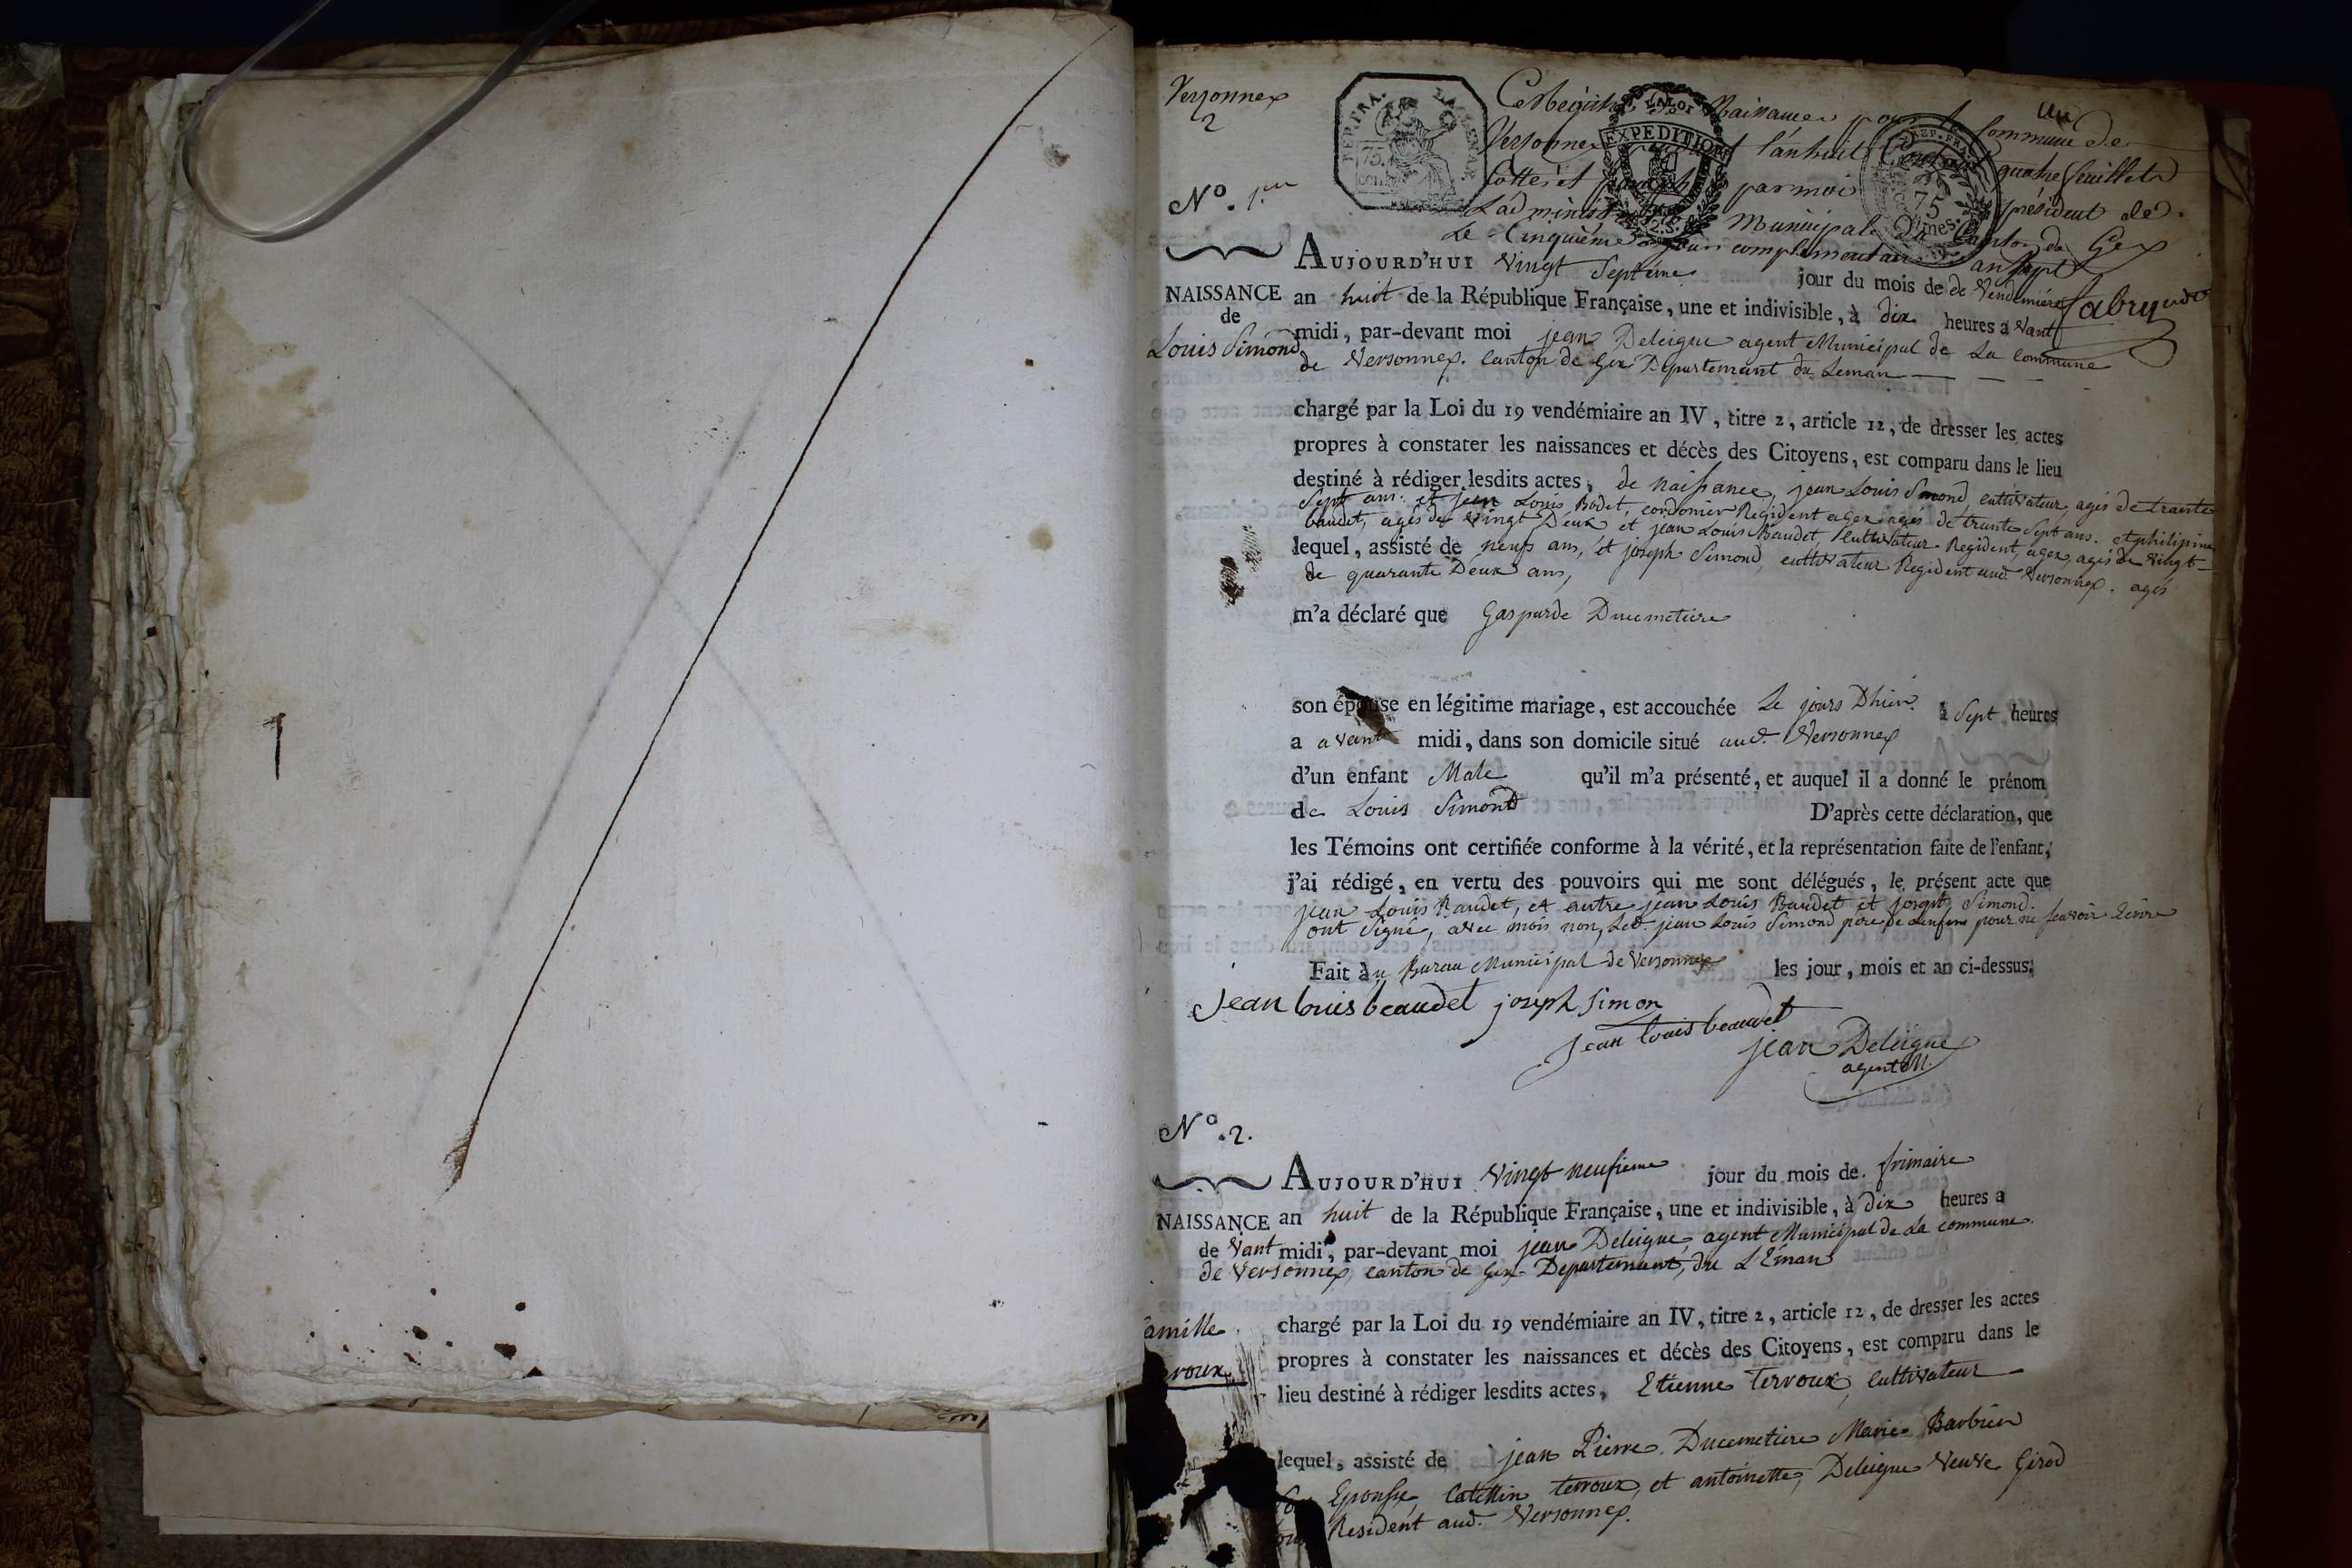 Versonnex
2
un
Ce Registre de Naissances pour la Commune de
Versonnex l'an huit Contenant quatre feuillets
Cotté et paraphé par moi président de
L'administration Municipale du Canton de Gex
Le Cinquieme jour complementaire an sept
REP. FRA.
75
CENT.
LA LOI
EXPEDITION
REP. FRA.
75
Fabry
No. 1.er
AUJOURD'HUI Vingt Septéme jour du mois de de Vendemiére
NAISSANCE
de
Louis Simond
an huit de la République Française, une et indivisible, à dix heures a vant
midi, par-devant moi jean Deleigue agent Municipal de La Commune
de Versonnex. Canton de Gex Departement du Leman
chargé par la Loi du 19 vendémiaire an IV, titre 2, article 12, de dresser les actes
propres à constater les naissances et décès des Citoyens, est comparu dans le lieu
destiné à rédiger lesdits actes, de naissance, jean Louis Simond, cultivateur, agés de trante
Sept ans. et jean Louis Bodet, cordonier Regident a gex agés de trante Sept ans. et philipine
baudet, agés de Vingt Deux et jean Louis Baudet Cultivateur Regident a gex, agés de Vingt-
lequel, assisté de neufs ans, et joseph Simond, cultivateur Regident aud. Versonnex. agés
de quarante Deux ans,
m'a déclaré que Gasparde Ducimetiere
son épouse en légitime mariage, est accouchée Le jours Dhier. à Sept heures
a avant midi, dans son domicile situé aud. Versonnex
d'un enfant Male qu'il m'a présenté, et auquel il a donné le prénom
de Louis Simond D'après cette déclaration, que
les Témoins ont certifiée conforme à la vérité, et la représentation faite de l'enfant,
j'ai rédigé, en vertu des pouvoirs qui me sont délégués, le présent acte que
jean Louis Baudet, et autre jean Louis Baudet et joseph Simond.
ont Signé, avec mois non, Led. jean Louis Simond pére de Lenfent pour ne seavoir Ecrire
Fait au Bureau Municipal de Versonnex les jour, mois et an ci-dessus.
jean louis beaudet joseph Simon
jean louis beaudet
jean Deleigue
agent M.
No. 2.
AUJOURD'HUI Vingt neufieme jour du mois de frimaire
NAISSANCE an huit de la République Française, une et indivisible, à dix heures a
de Vant midi, par-devant moi jean Deleigue, agent Municipal de La commune.
de Versonnex, canton de Gex Departement, du L'Eman
amille
rroux
chargé par la Loi du 19 vendémiaire an IV, titre 2, article 12, de dresser les actes
propres à constater les naissances et décès des Citoyens, est comparu dans le
lieu destiné à rédiger lesdits actes, Etienne Terroux, cultivateur
lequel, assisté de jean Pierre Ducemetiere Marie Barbier
Epouse, terroux, et antoinette, Deleigue Veuve Girod
Resident aud. Versonnex.